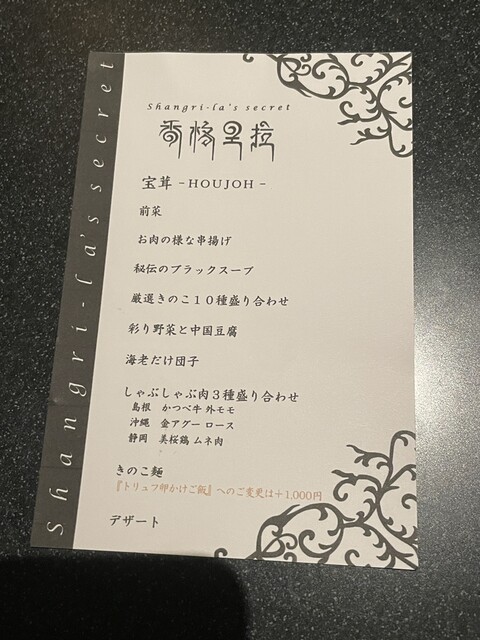 Shangri-la's secret
Shangri-la's secret
香格里拉
宝茸 -HOUJOH-
前菜
お肉の様な串揚げ
秘伝のブラックスープ
厳選きのこ10種盛り合わせ
彩り野菜と中国豆腐
海老だけ団子
しゃぶしゃぶ肉3種盛り合わせ
島根 かつべ牛 外モモ
沖縄 金アグー ロース
静岡 美桜鶏 ムネ肉
きのこ麺
『トリュフ卵かけご飯』へのご変更は+1,000円
デザート